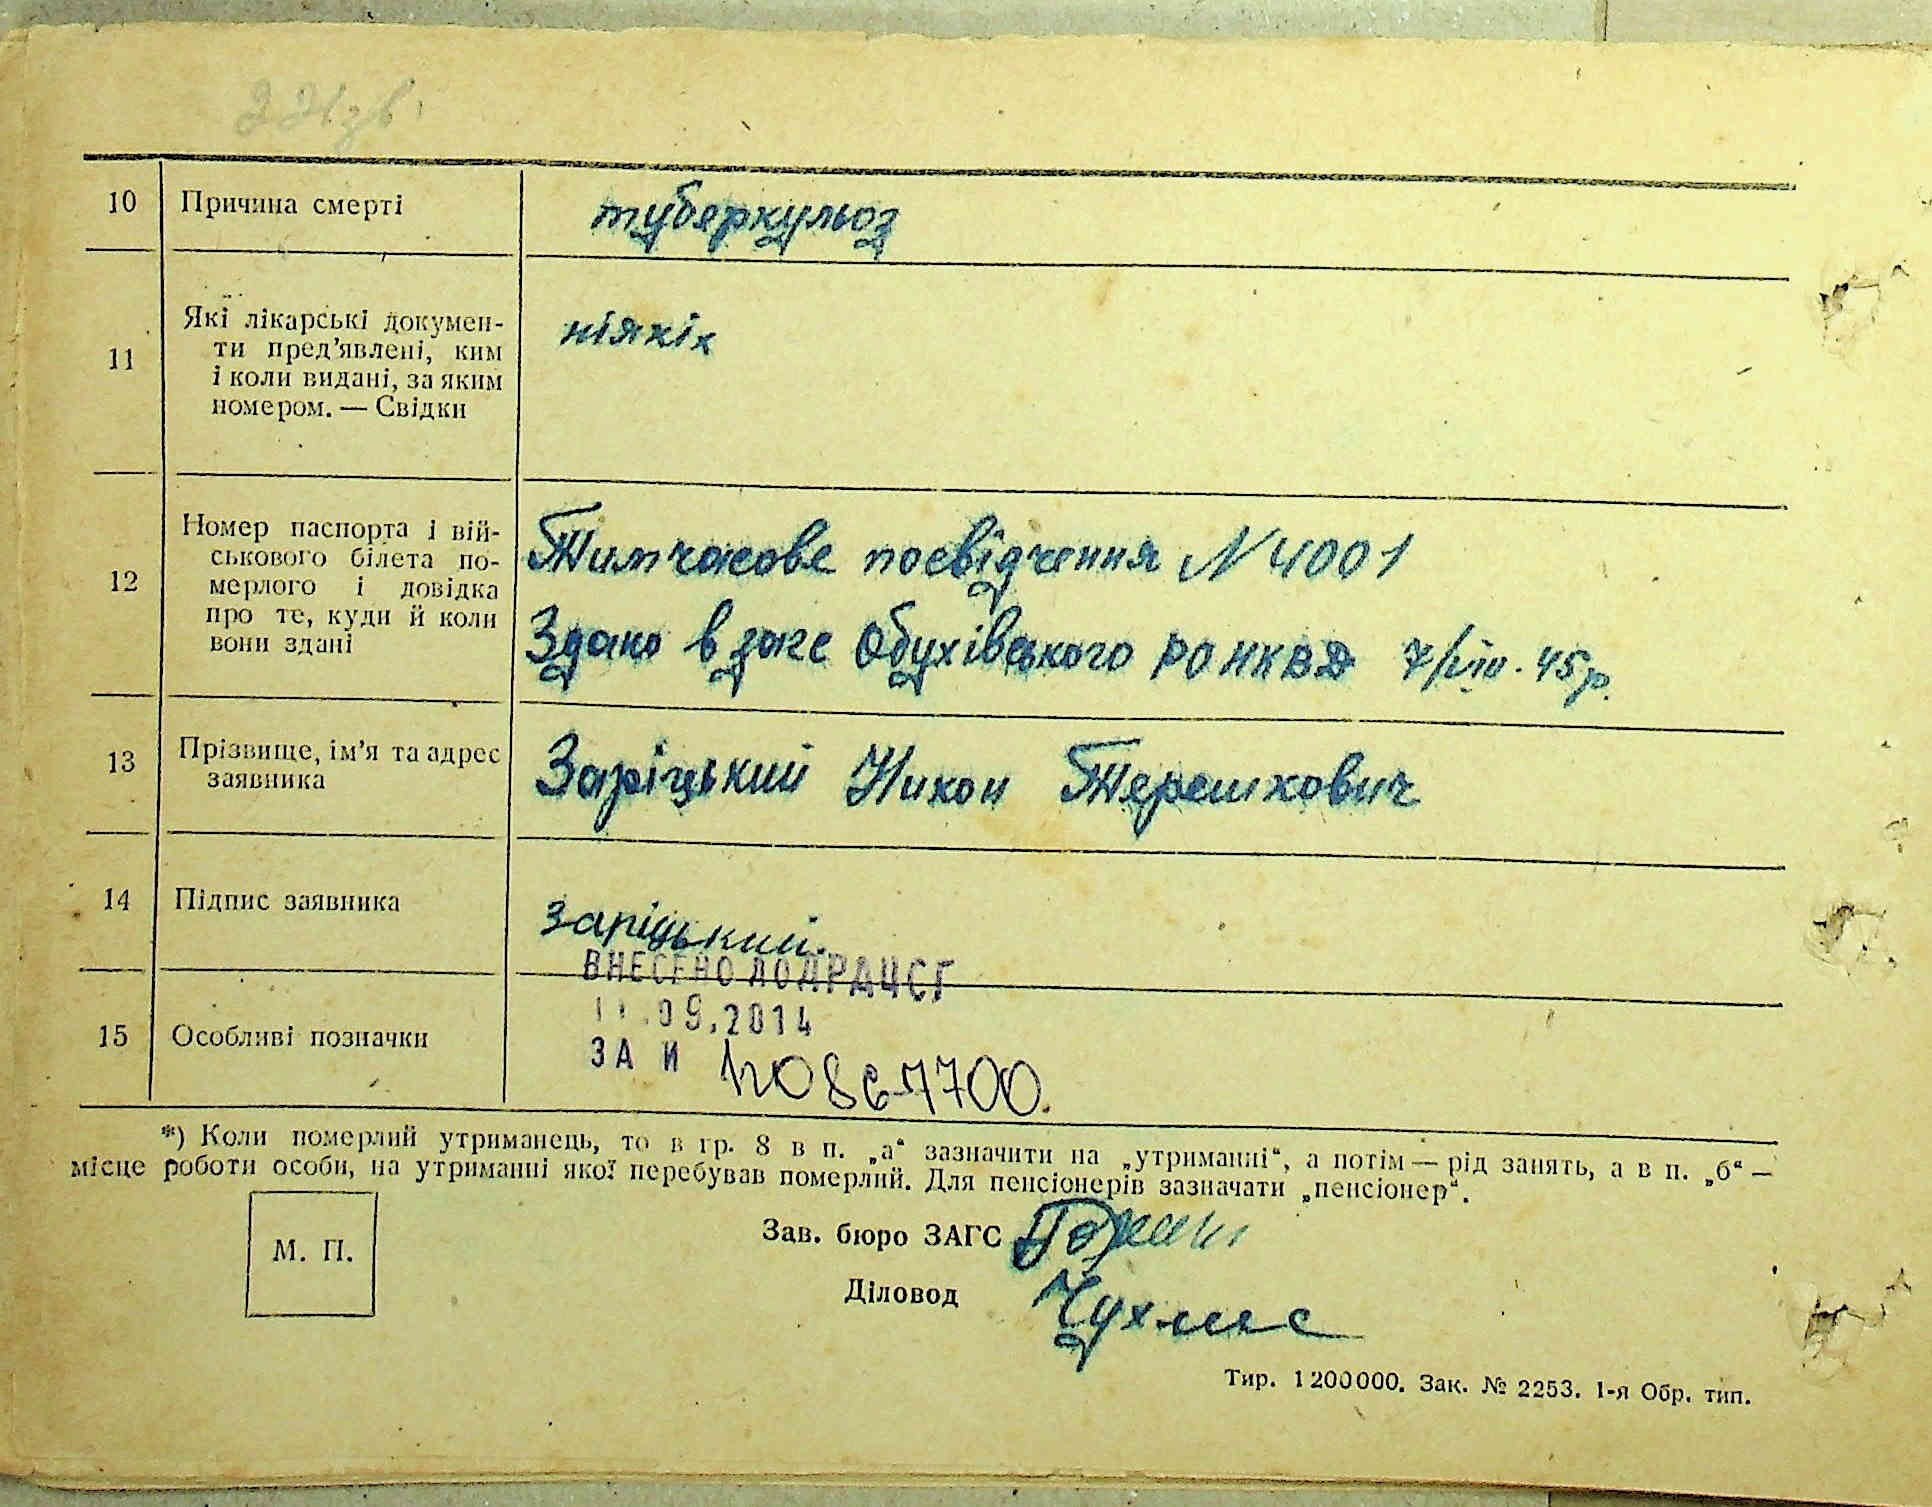 221зв.
10 Причина смерті туберкульоз
11 Які лікарські докумен-
ти пред'явлені, ким
і коли видані, за яким
номером. — Свідки
ніякіх
12 Номер паспорта і вій-
ськового білета по-
мерлого і довідка
про те, куди й коли
вони здані
Тимчасове посвідчення N 4001
Здано в загс Обухівського РО НКВД 7/VIII. 45 р.
13 Прізвище, ім'я та адрес
заявника
Заріцький Никон Терешкович
14 Підпис заявника Заріцький.
ВНЕСЕНО ДО ДРАЦСГ
11.09.2014
15 Особливі позначки
ЗА N
*) Коли померлий утриманець, то в гр. 8 в п. „а“ зазначити на „утриманні“, а потім — рід занять, а в п. „б“ —
місце роботи особи, на утриманні якої перебував померлий. Для пенсіонерів зазначати „пенсіонер“.
М. П.
Зав. бюро ЗАГС
Діловод
Тир. 1 200 000. Зак. № 2253. 1-я Обр. тип.